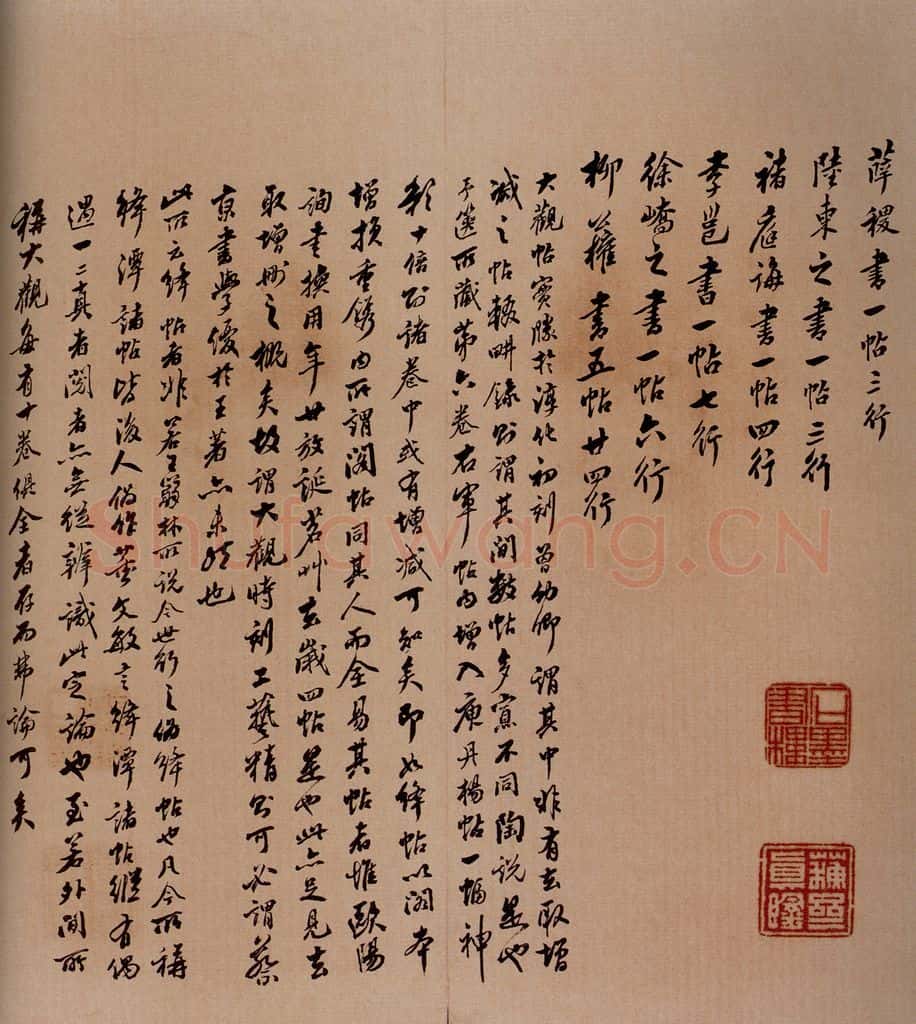 薛稷書一帖三行
陸東之書一帖三行
褚庭誨書一帖四行
李邕書一帖七行
徐嶠之書一帖六行
柳公權書五帖廿四行
大觀帖實勝於淳化初刻曾幼卿謂其中非有去取增
減之帖輟畊錄則謂其間數帖多寡不同陶說是也
予篋所藏第六卷右軍帖內增入庾丹楊帖一幅神
彩十倍則諸卷中或有增減可知矣即如絳帖以閣本
增損重鐫內所謂閣帖同其人而全易其帖者惟歐陽
詢書換用年廿放誕茗艸去歲四帖是也此亦足見去
取增刪之概矣故謂大觀時刻工藝精則可必謂蔡
京書學優於王著亦未然也
此所云絳帖者非若王篛林所說今世行之偽絳帖也凡今所稱
絳潭諸帖皆後人偽作董文敏言絳潭諸帖繼有偶
遇一二真者閱者亦無從辨識此定論也至若外間所
稱大觀每有十卷俱全者存而弗論可矣
石墨書樓
蘇齋真隂
Shufawang.CN